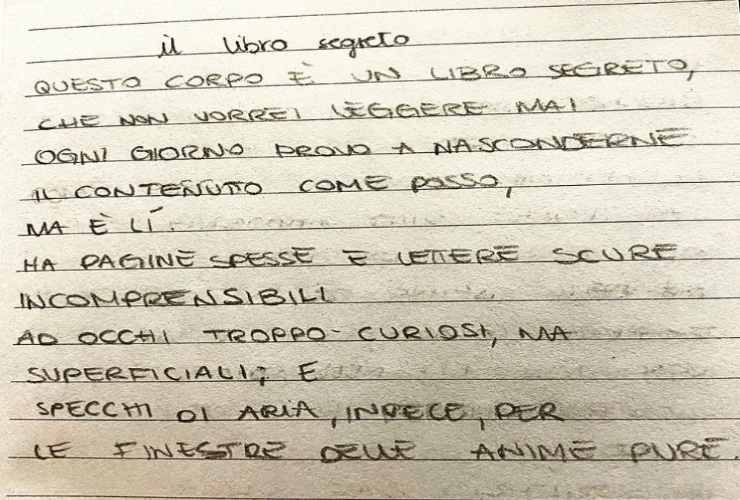 il libro segreto
QUESTO CORPO È UN LIBRO SEGRETO,
CHE NON VORREI LEGGERE MAI
OGNI GIORNO PROVO A NASCONDERNE
IL CONTENUTO COME POSSO,
MA È LÌ.
HA PAGINE SPESSE E LETTERE SCURE
INCOMPRENSIBILI
AD OCCHI TROPPO CURIOSI, MA
SUPERFICIALI; E
SPECCHI DI ARIA, INVECE, PER
LE FINESTRE DELLE ANIME PURE.